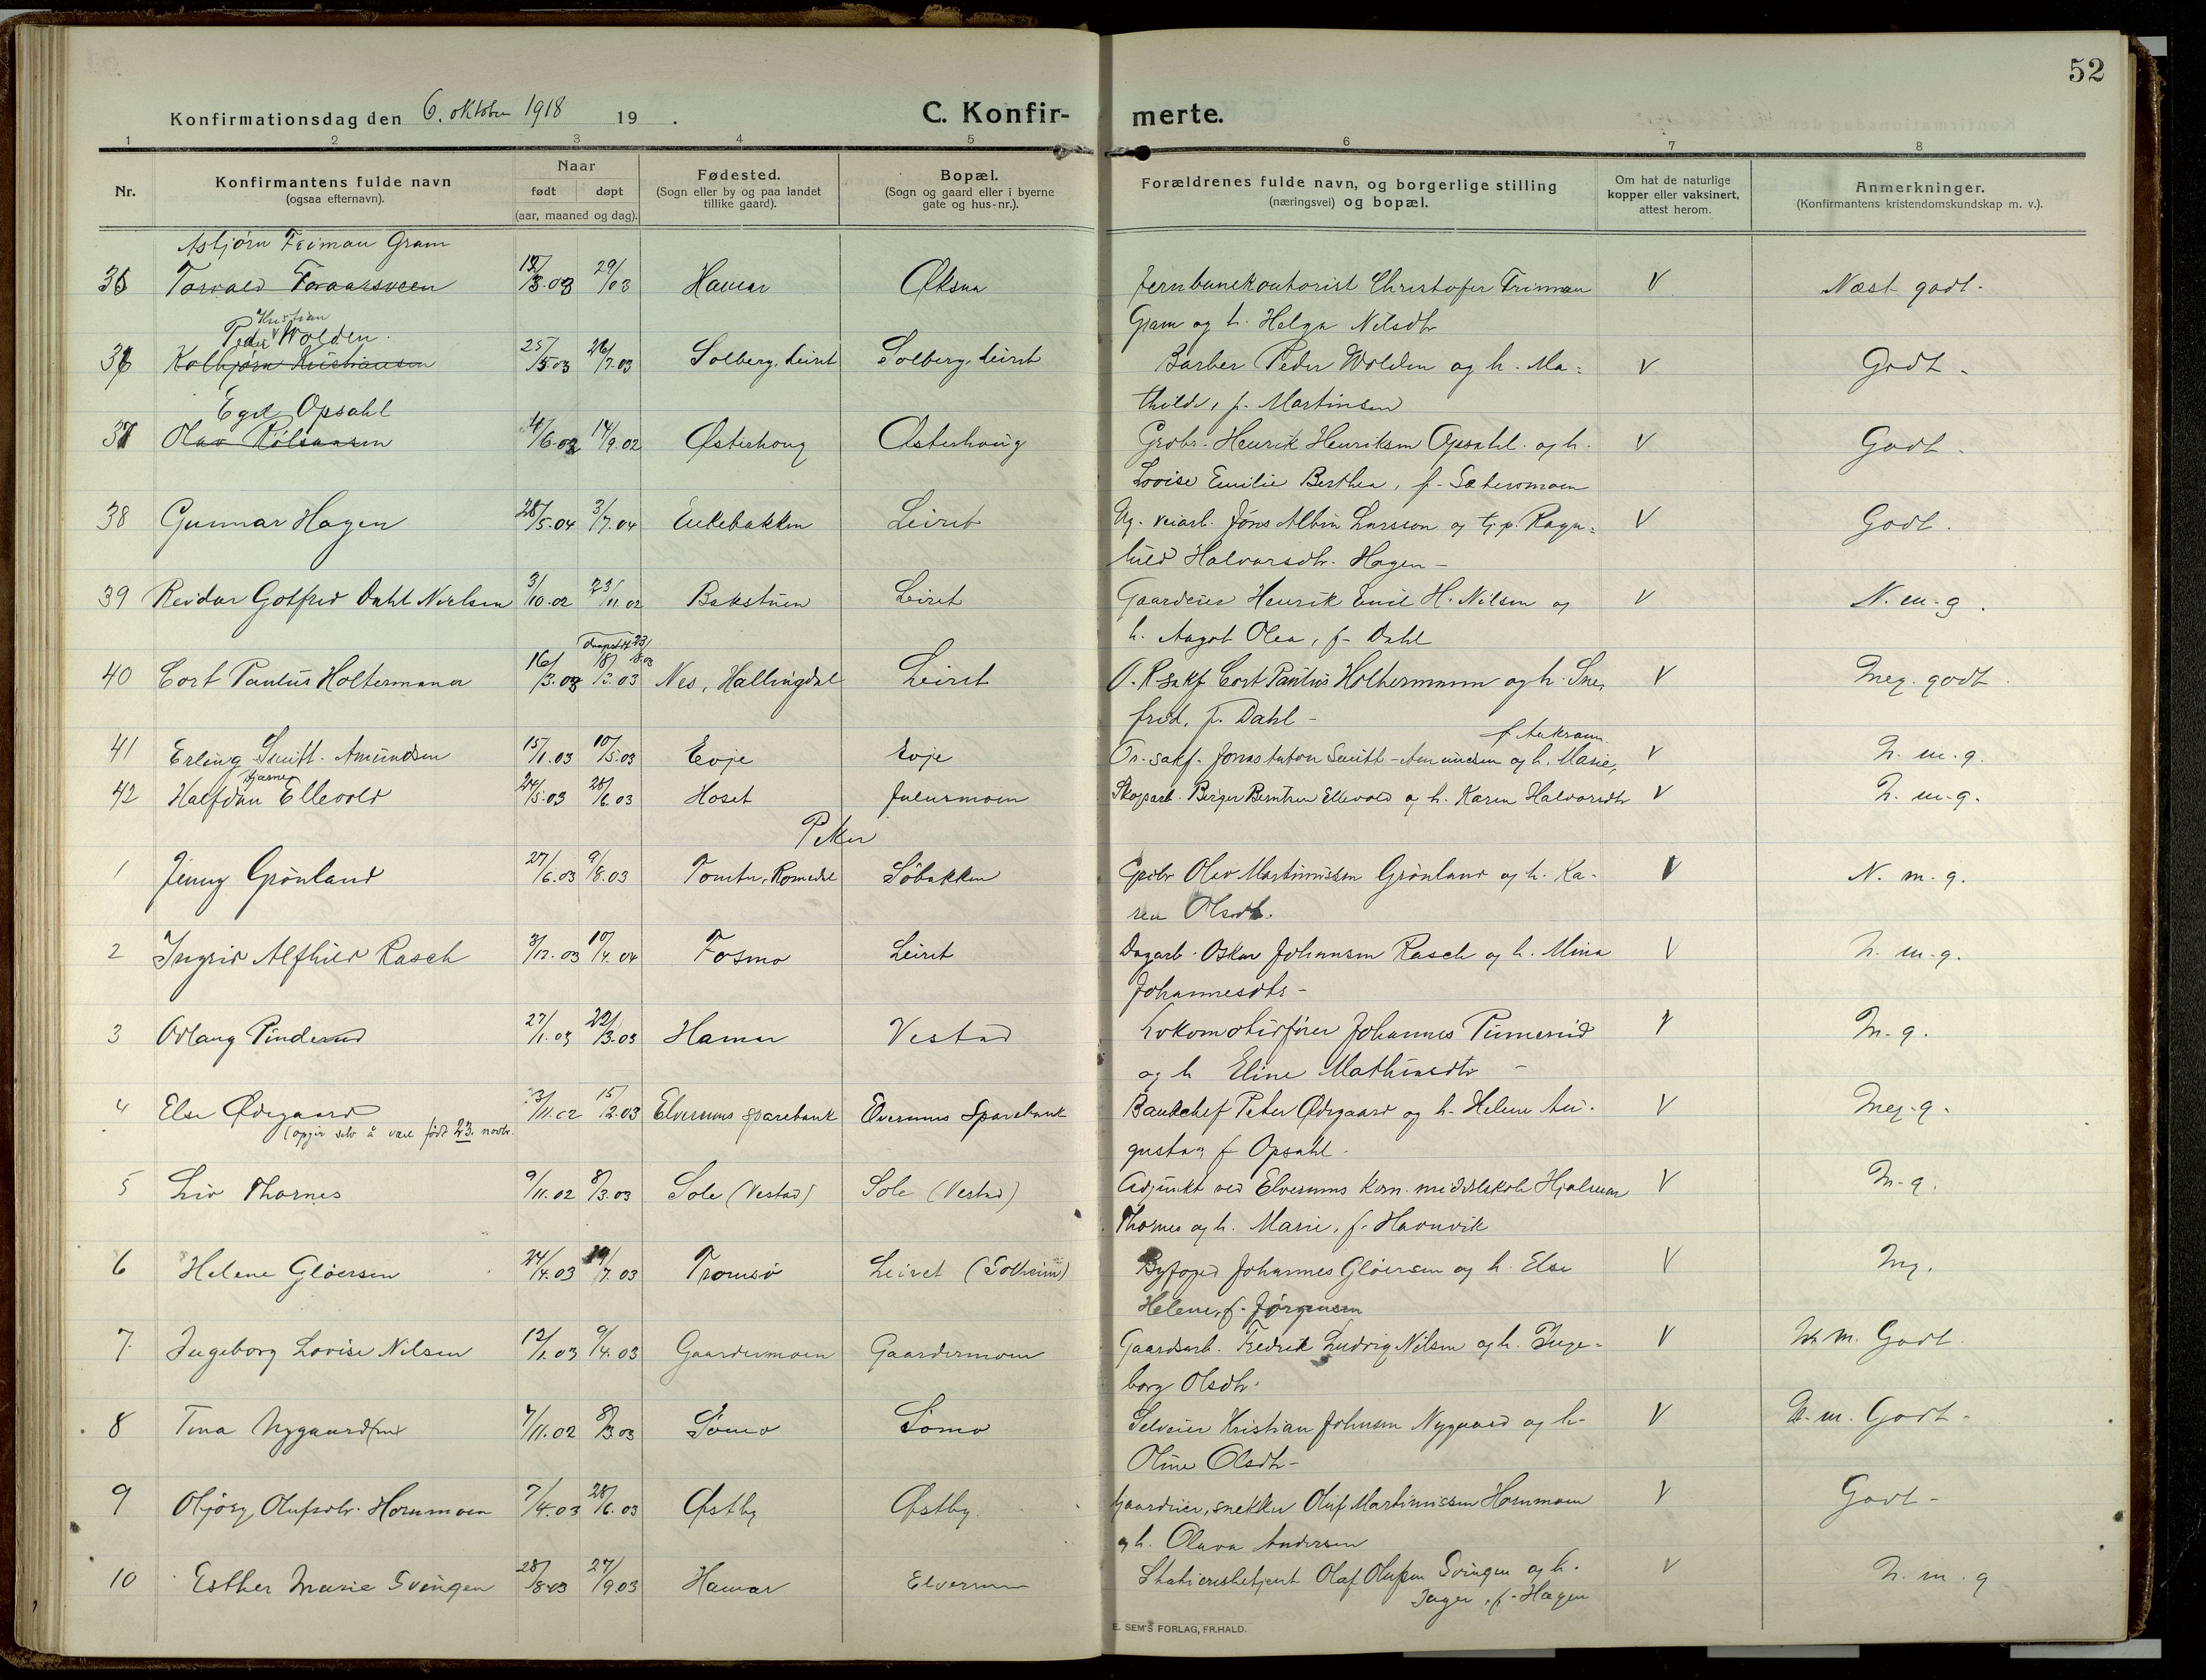 52
Konfirmationsdag den 6. oktober 1918 19 .
C. Konfir- merte.
1 2 3 4 5 6 7 8
Nr.
Konfirmantens fulde navn
(ogsaa efternavn).
Naar
født døpt
(aar, maaned og dag).
Fødested.
(Sogn eller by og paa landet
tillike gaard).
Bopæl.
(Sogn og gaard eller i byerne
gate og hus-nr.).
Forældrenes fulde navn, og borgerlige stilling
(næringsvei) og bopæl.
Om hat de naturlige
kopper eller vaksinert,
attest herom.
Anmerkninger.
(Konfirmantens kristendomskundskap m. v.).
Asbjørn Freiman Gram
35 29/ 03 Hamar Øksna Jernbanekontorist Christofer Friman V Næst godt.
Gram og h. Helga Nilsdtr
Kristian
Peder Wolden.
36 Kolbjørn Kristiansen 25/5.03 26/7.03 Solberg, Leiret Solberg, Leiret Barber Peder Wolden og h. Ma= V Godt.
thilde, f. Martinsen
Egil Opsahl
37 Olav 4/6.02 14/9.02 Østerhoug Østerhoug Grdbr. Henrik Henriksen Opsahl og h. V Godt.
Lovise Emilie Berthea, f. Sætersmoen
38 Gunnar Hagen 28/5.04 3/7.04 Enkebakken Leiret Ug. veiarb. Jøns Albin Larsson og tj.p. Ragn= V Godt.
hild Halvorsdtr. Hagen -
39 Reidar Gotfred Dahl Nielsen 3/10.02 23/11.02 Bakstuen Leiret Gaardeier Henrik Emil H. Nilsen og V N. m. g.
h. Aagot Olea, f. Dahl
40 Cort Paulus Holtermann 16/3.03 18/ .03 Nes, Hallingdal Leiret O.R.sakf. Cort Paulus Holtermann og h. Sne, V Meg. godt.
frid, f. Dahl -
f. Ankram
41 Erling Smitt-Amundsen 15/1.03 10/5.03 Evje Evje Or. sakf. Jonas Anton Smitt-Amundsen og h. Marie, V N. m. g.
Bjarne
42 Halfdan Ellevold 24/5.03 28/6.03 Hoset Julusmoen Skogarb. Berger Berntsen Ellevold og h. Karen Halvorsdtr V N. m. g.
Piker
1 Jenny Grønland 27/6.03 9/8.03 Tomter, Romedal Søbakken Grdbr. Olav Martinussen Grønland og h. Ka- V N. m. g.
ren Olsdtr.
2 Ingrid Alfhild Rasch 3/12.03 10/4.04 Fosmo Leiret Dagarb. Oskar Johansen Rasch og h. Mina V N. m. g.
Johannesdtr -
3 Odlaug Pinderud 27/1.03 22/3.03 Hamar Vestad Lokomotivfører Johannes Pinnerud V M. g.
og h. Eline Mathiasdtr -
4 Else Ødegaard 3/11.02 15/2.03 Elverums sparebank Elverums Sparebank Bankchef Peter Ødegaard og h. Helene Au- V Meg. g.
(opgir selv å være født 23. novbr.
gusta, f. Opsahl.
5 Liv Thornes 9/11.02 8/3.03 Sole (Vestad) Sole (Vestad) Adjunkt ved Elverums kom. middelskole Hjalmar V M. g.
Thornes og h. Marie, f. Havnvik
6 Helene Gløersen 24/4.03 19/7.03 Tromsø Leiret (Solheim) Byfoged Johannes Gløersen og h. Else V Mg.
Helene, f. Jørgensen
7 Ingeborg Lovise Nilsen 12/1.03 9/4.03 Gaardermoen Gaardermoen Gaardsarb. Fredrik Ludvig Nilsen og h. Inge- V N. m. Godt.
borg Olsdtr.
8 Tina Nygaard 7/11.02 8/3.03 Sømo Sømo Selveier Kristian Johnsen Nygaard og h. V N. m. Godt.
Oline Olsdtr -
9 Objørg Olufsdtr. Hornmoen 7/4.03 28/6.03 Østby Østby Gaardeier, snekker Oluf Martinussen Hornmoen V Godt -
og h. Olava Andersen
10 Esther Marie Svingen 28/8.03 27/9.03 Hamar Elverum Stationsbetjent Olaf Olufsen Svingen og h. V N. m. g
Inger, f. Hagen
E. SEM'S FORLAG, FR.HALD.